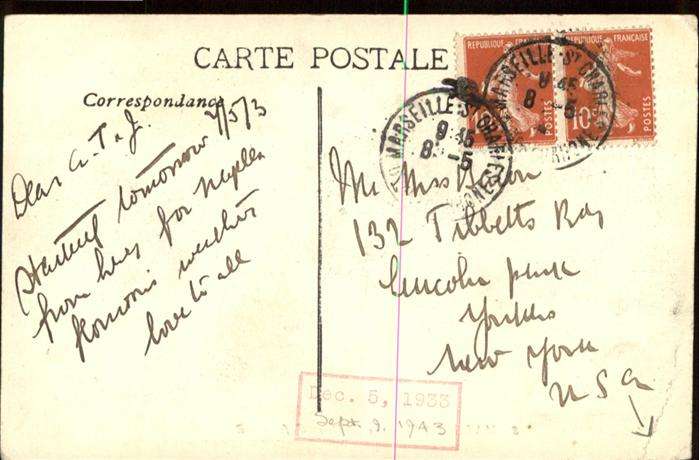 CARTE POSTALE
Correspondance
7/5/3
Dear A. T & J.
tomorrow
from here for Naples
weather
love to all
REPUBLIQUE FRANÇAISE
POSTES
REPUBLIQUE FRANÇAISE
10c
POSTES
MARSEILLE-ST CHARLES
9 45
8 - 5
MARSEILLE-ST CHARLES
9 45
8 - 5
RHONE
Mr Mrs
132 Tibbetts Rd
Lincoln park
Yonkers
New York
USA
Dec. 5, 1933
Sept. 9. 1943